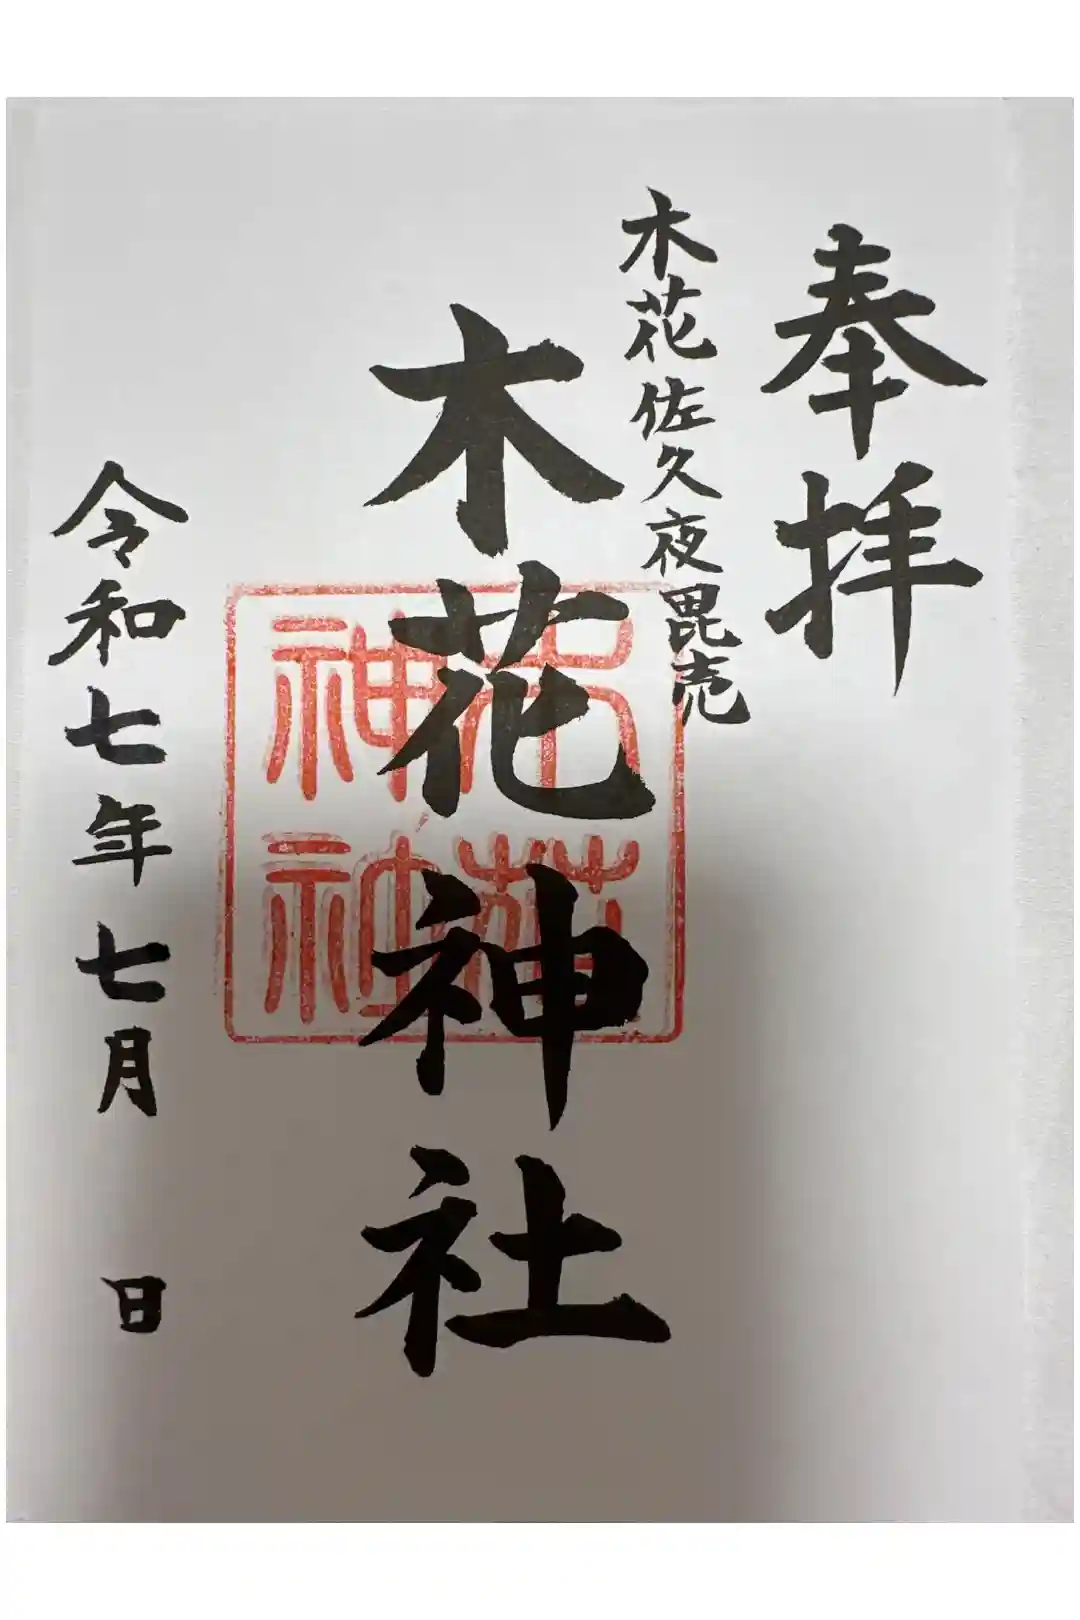 奉拝
木花佐久夜毘売
木花神社
木花
神社
令和七年七月 日